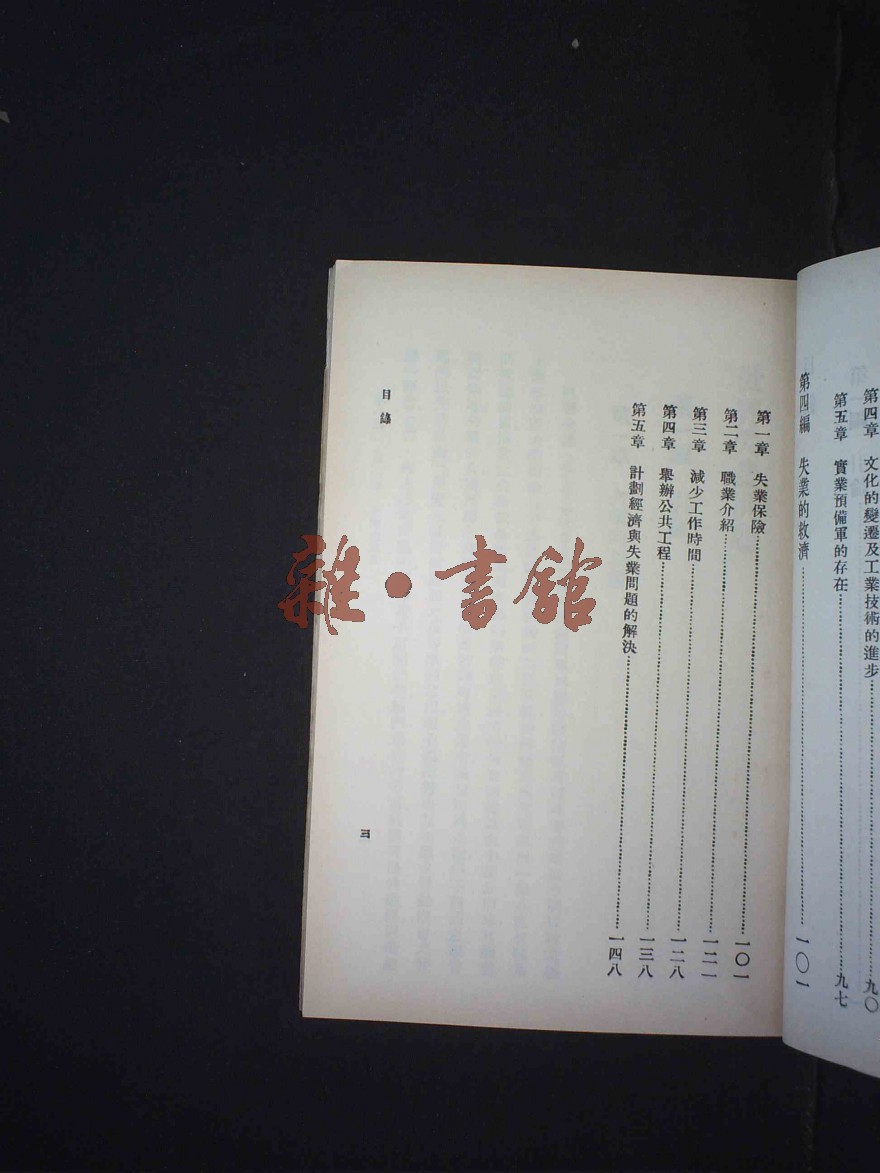 第四章　文化的變遷及工業技術的進步……九〇
第五章　實業預備軍的存在……九七
第四編　失業的救濟……一〇一
第一章　失業保險……一〇一
第二章　職業介紹……一二一
第三章　減少工作時間……一二八
第四章　舉辦公共工程……一三八
第五章　計劃經濟與失業問題的解決……一四八
目錄
三
雜·書館